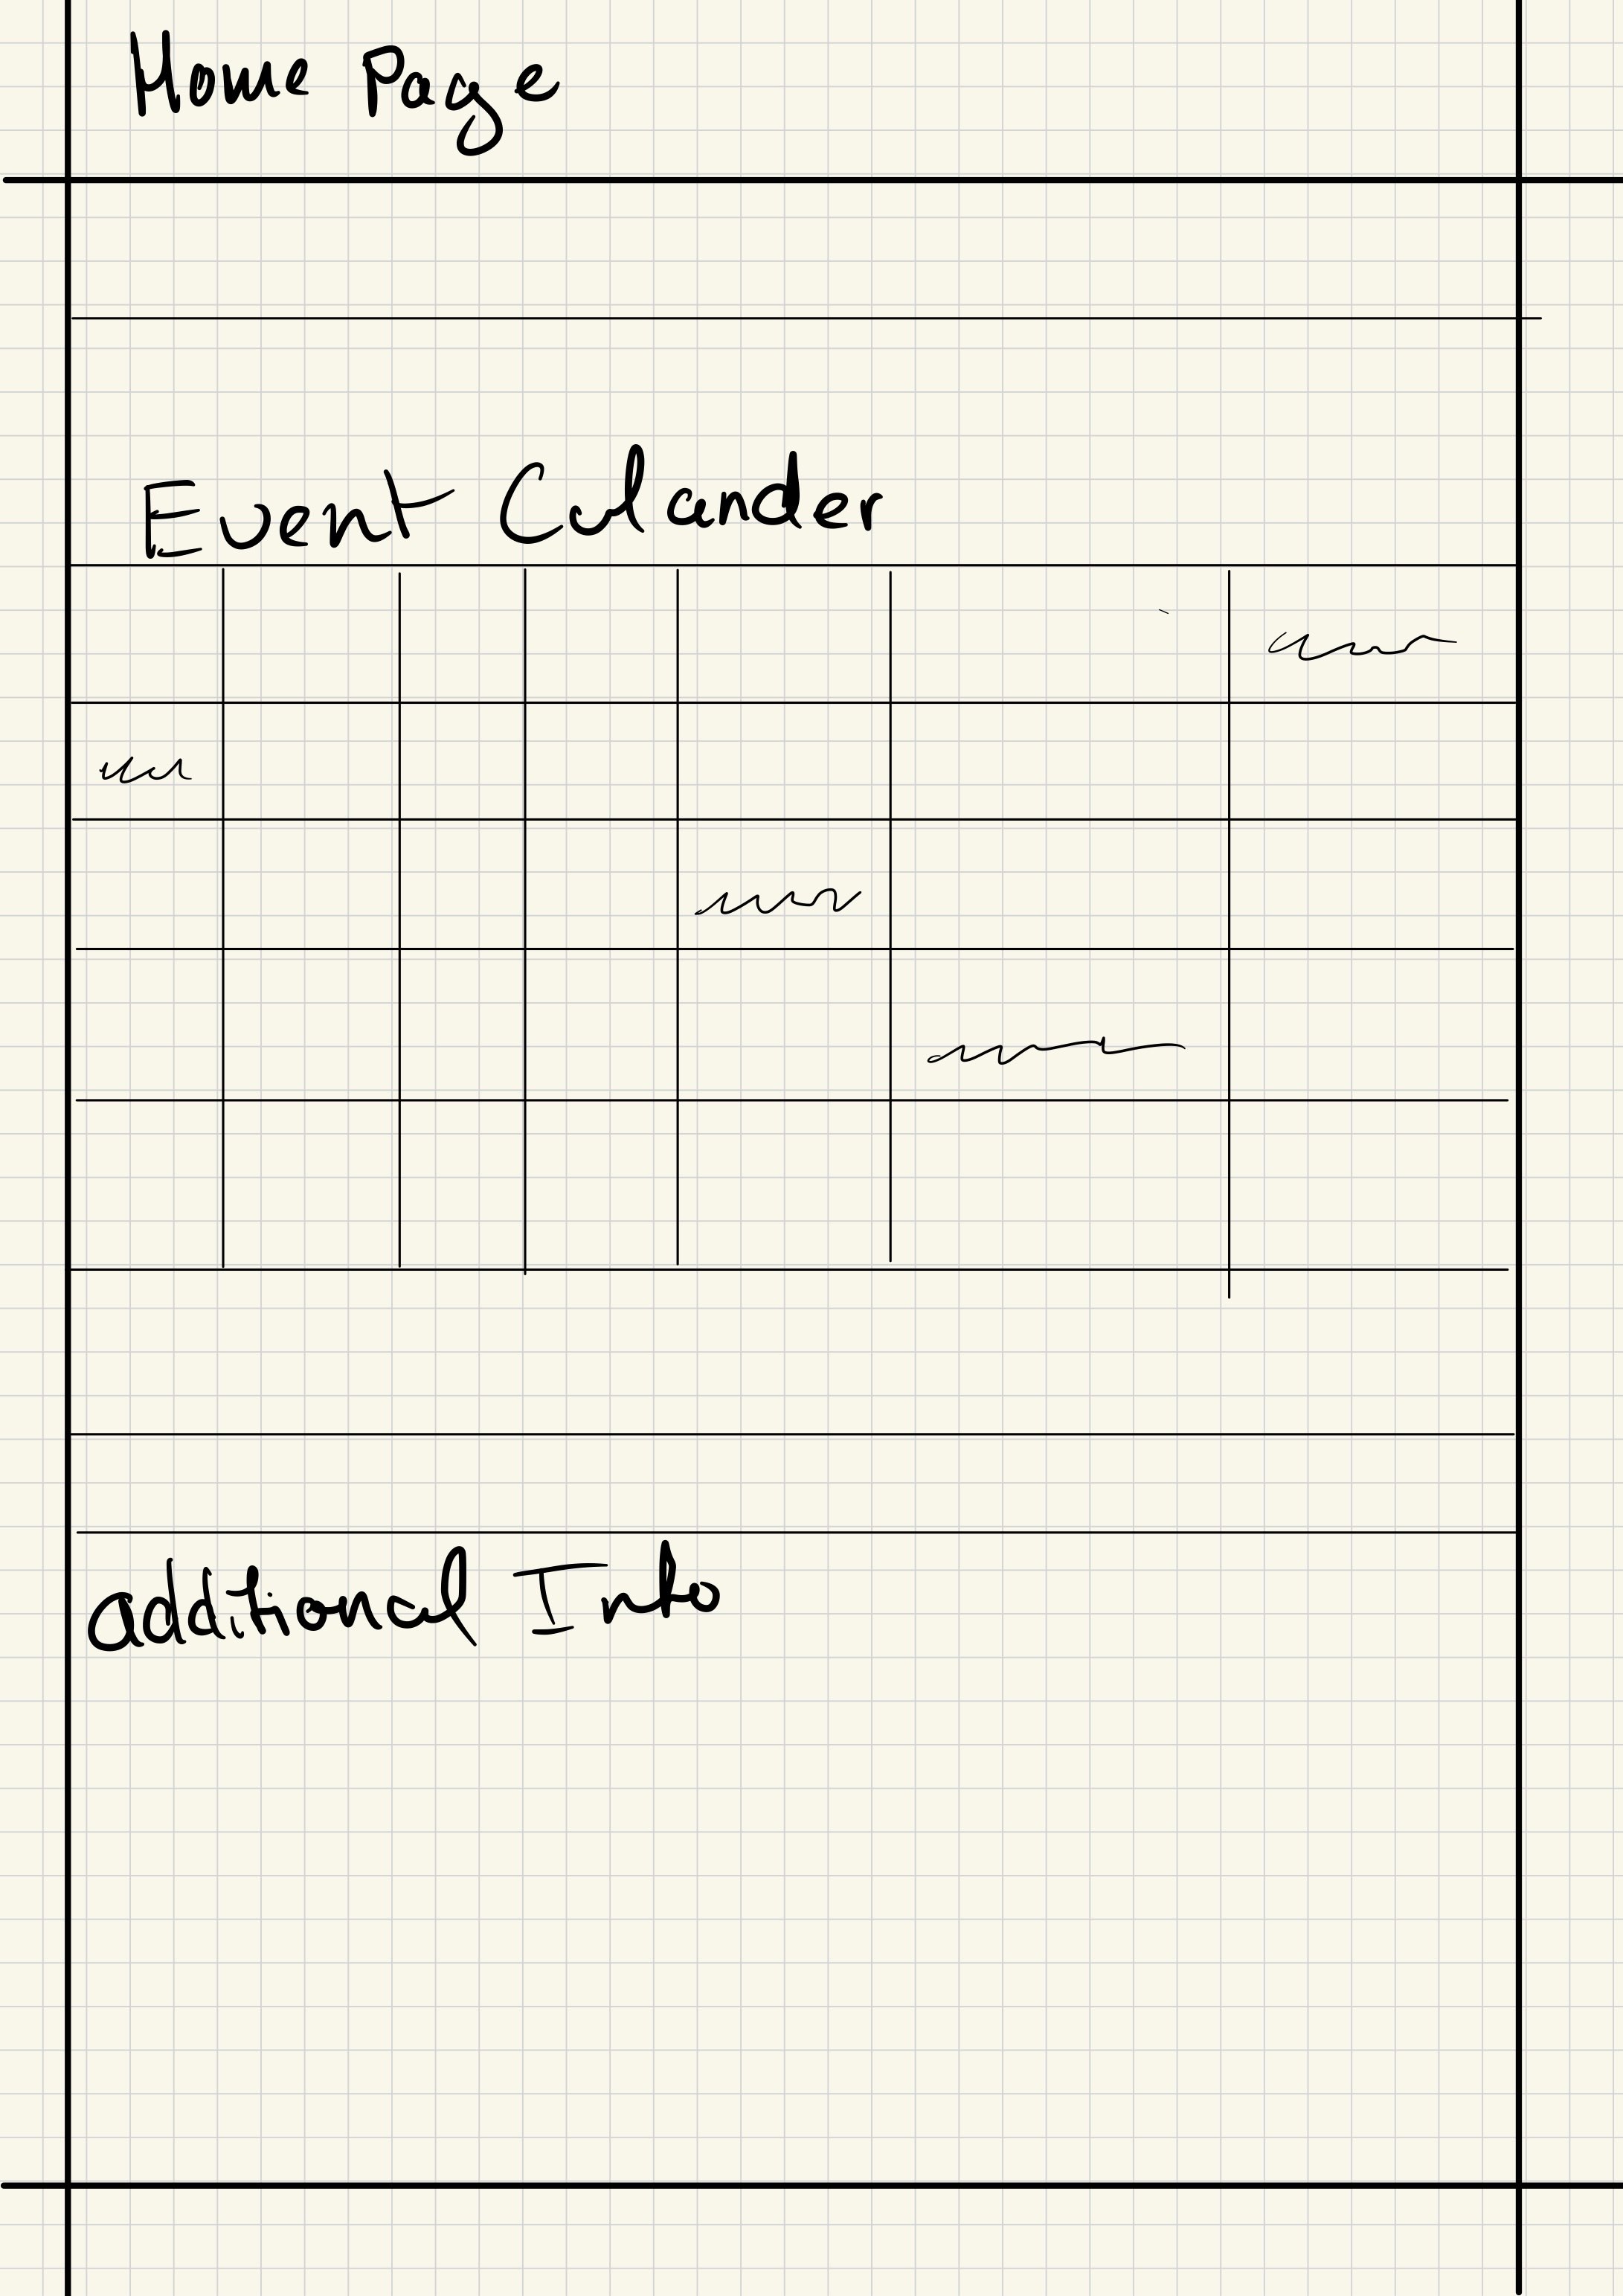 Home Page
Event Calander
additional Info